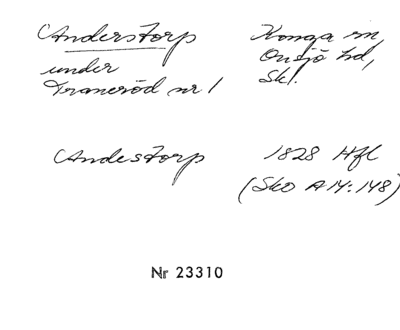 Anderstorp
under
Traneröd nr 1
Konga sn,
Onsjö hd,
Sk.
Anderstorp 1828 Hfl
(Sko A14:148)
Nr 23310